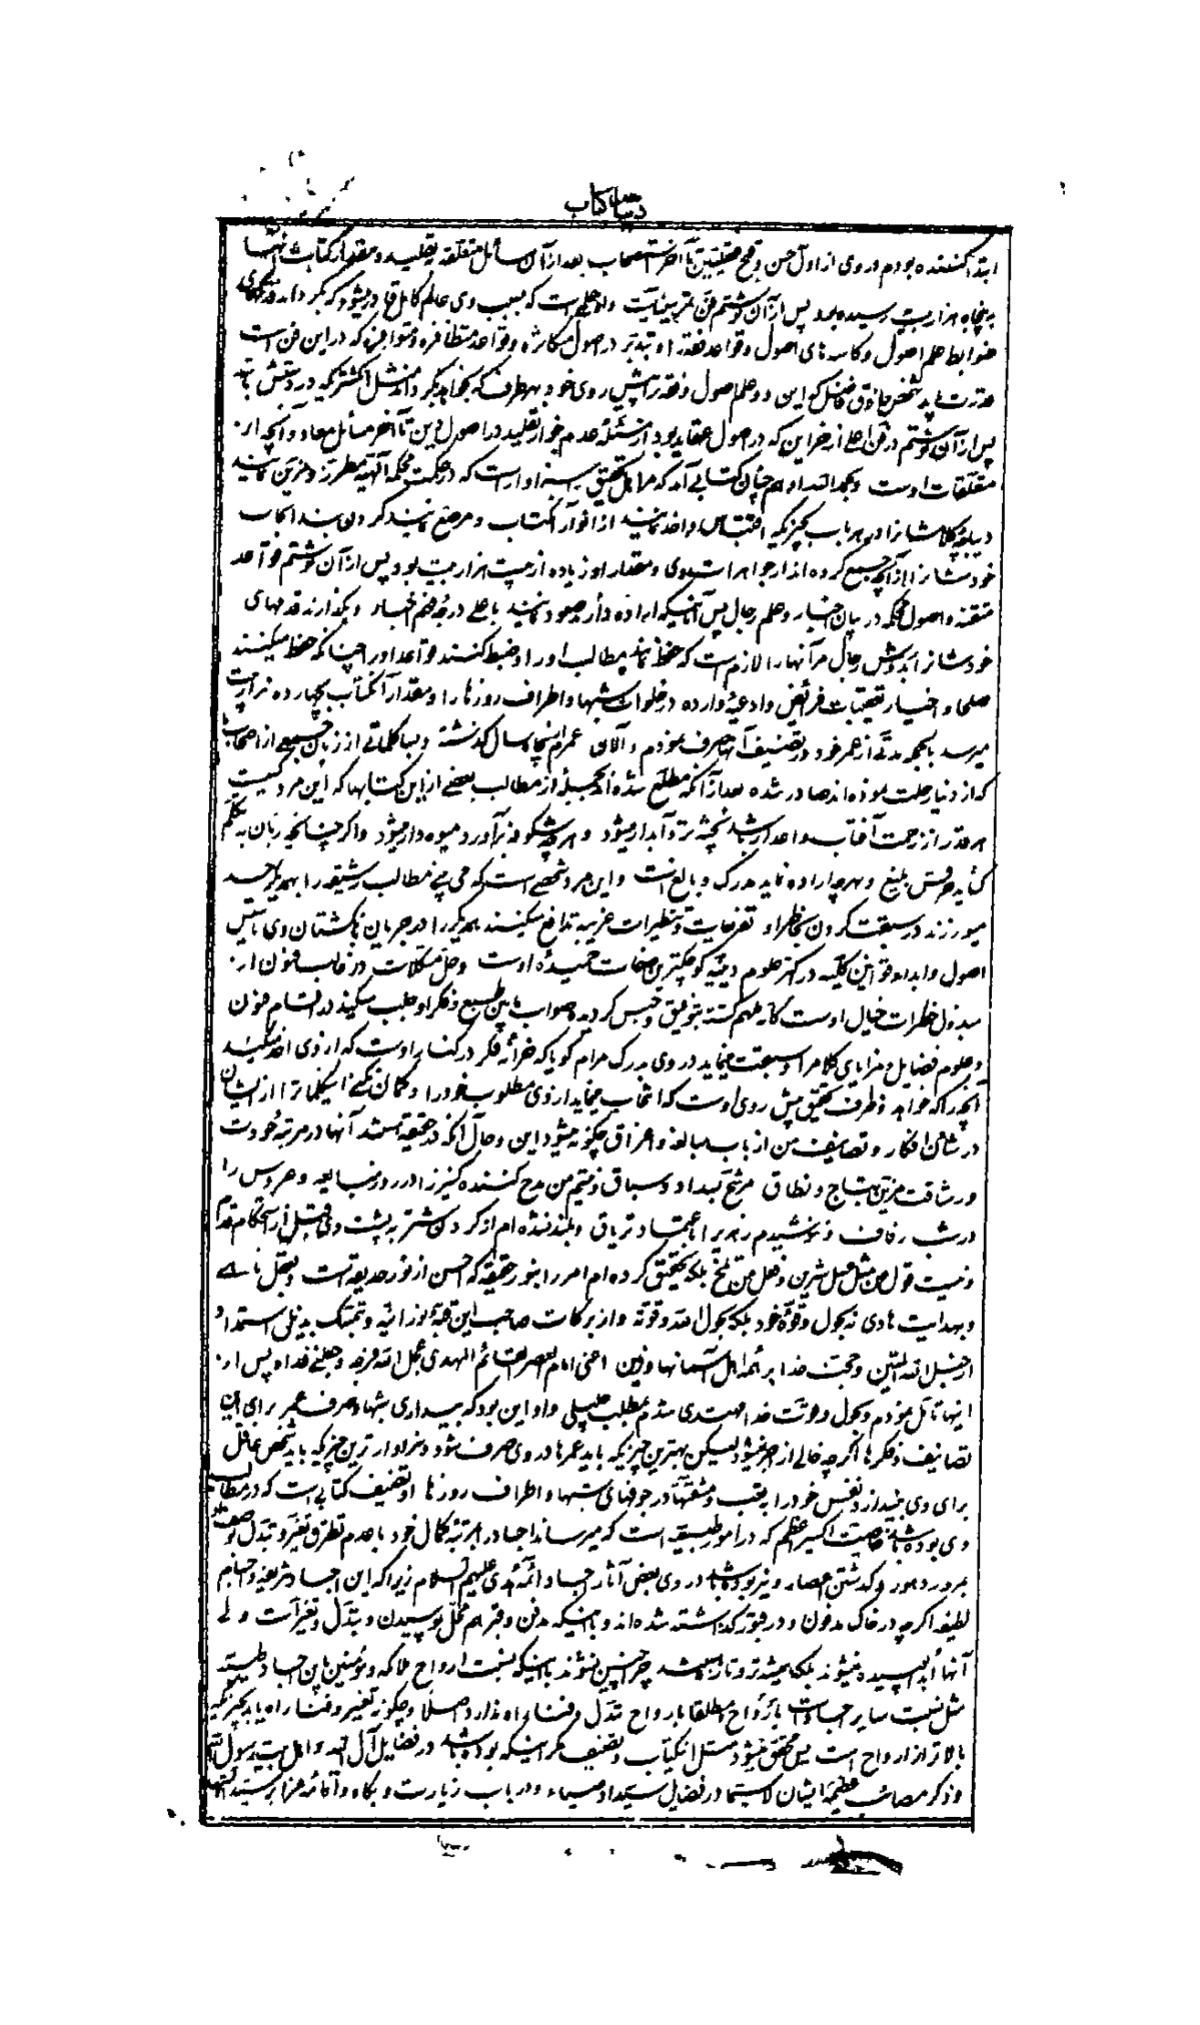 دیباچه کتاب
ابتدا کننده بودم در وی از اول حسن و قبح عقلیین تا آخر استصحاب بعد از آن مسائل متعلقه بتقلید و مقدار کتاب
به پنجاه هزار بیت رسیده بود پس از آن نوشتم فن تمرینیات و او علمی است که بسبب وی عالم کامل قادر میشود که بگرداند
ضوابط علم اصول و کاسه های اصول و قواعد فقه را و تدبر در اصول متکاثره و قواعد متظافره و متوافره که در این فن است
قدرت یابد شخص حاذق فاضل که این دو علم اصول و فقه را پیش روی خود بهر طرف که بخواهد بگرداند مثل انگشتریکه در دستش باشد
پس از آن نوشتم در فن اعلی از فخر این که در اصول عقاید بود از مسئله عدم جواز تقلید در اصول دین تا آخر مسائل معاد و آنچه از
متعلقات اوست و بحمد الله او هم چنان کتابی آمد که مر اهل تحقیق سزاوار است که در حکمت محکمه الهیه مطرز و مزین نمایند
دیباچه کلامشانرا در هر باب بچیزیکه اقتباس و اخذ نمایند از انوار آن کتاب و مرصع نمایند گردن بند انجاب
خودشانرا از آنچه جمیع کرده اند از جواهرات وی و مقدار او زیاده از بیست هزار بیت بود و پس از آن نوشتم قواعد
متقنه و اصول محکمه در بیان اخبار و علم رجال پس آنانیکه اراده دارند صعود نمایند باعلی درجه فهم اخبار و بگذارند قدمهای
خودشانرا بدوش رجال مر آنها را لازم است که حفظ نمایند مطالب او را و ضبط کنند قواعد او را چنانکه حفظ میکنند
صلحا و اخیار تعقیبات فرائض و ادعیه وارده در خلوات شبها و اطراف روزها را و مقدار آن کتاب بچهارده هزار بیت
میرسد بالجمله مدتی از عمر خود در تصنیف آنها صرف نمودم و الان عمرم از پنجاه سال گذشته و بسا کلماتی از زبان جمیعی از اصحاب
که از دنیا رحلت نموده اند صادر شده بعد از آنکه مطلع شده اند بجمله از مطالب بعضی از این کتابها که این مرد کیست
هر قدر از زحمت آفتاب و اعدا رسد غنچه تر و آبدار میشود و هر چه شکوفه برآورد میوه دار میشود و اگر چنانچه زبان به تکلم
گشاید حرفش بلیغ و بهر چه اراده نماید مدرک و بالغ است و این مرد شخصی است که می بینی مطالب رشیقه را بهمدیگر حسد
میورزند در سبقت کردن بخاطر او و تفریعات و تنظیرات غریبه تدافع میکنند همدیگر را در جریان بانگشتان وی تاسیس
اصول و ابداء قوانین کلیه در کثر علوم دینیه کوچکترین صفات حمیده اوست و حل مشکلات در غالب فنون از
مبذول خطرات خیال اوست گویا که ملهم گشته بتوفیق و حبس کردیده صواب مابین طبع و فکر او جلب میکند در اقسام فنون
و علوم فضایل و مزایای کلام را و سبقت مینماید در وی بدرک مرام گویا که خزانه فکر در کنار اوست که از وی اخذ میکند
آنچه را که خواهد و ظرف تحقیق پیش روی اوست که انتخاب مینماید از وی مطلوب خود را و گمان نکنی این کلمات را از ایشان
در شان افکار و تصانیف من از باب مبالغه و اغراق چگونه میشود این و حال آنکه در حقیقت هستند آنها در مرتبه جودت
و رشاقت مزین بتاج و نطاق مرشح بسداد و سباق و نیستم من مدح کننده کنیز را در روز مبایعه و عروس را
در شب زفاف و ننوشیدم زهر را باعتماد تریاق و بلند نشده ام از گردن شتر به پشت وی قبل از استحکام قدم
و نیست قول من مثل عسل شیرین و فعل من تلخ بلکه تحقیق کرده ام امر را بنور حقیقه که احسن از نور حدیقه است و بعقل ناهی
و بهدایت هادی نه بحول و قوه خود بلکه بحول الله و قوته و از برکات صاحب این قبه نورانیه و تمسک بذیل استمداد
از حبل الله المتین و حجت خدا بر همه اهل آسمانها و زمین اعنی امام العصر القائم المهدی عجل الله فرجه و جعلنی فداه پس از
اینها تامل نمودم و بحول و قوت خدا مهتدی شدم بمطلب جلیلی و او این بود که بیداری شبها و صرف عمر برای این
تصانیف و فکرها اگرچه خالی از اجر نمیشود لیکن بهترین چیزیکه باید عمرها در وی صرف شود و سزاوارترین چیزیکه باید شخص عاقل
برای وی بیندازد نفس خود را بتعب و مشقتها در جوفهای شبها و اطراف روزها او تصنیف کتابی است که در مطالب
وی بوده باشد خاصیت اکسیر اعظم که در امور طبیعیه است که میرساند اجساد را بمرتبه کمال خود با عدم تطرق تغیر و تبدل
بمرور دهور و گذشتن اعصار و نیز بوده باشد در وی بعض آثار اجساد ائمه هدی علیهم السلام زیرا که این اجساد شریفه و اجسام
لطیفه اگرچه در خاک مدفون و در قبور گذاشته شده اند و با اینکه مدفن و قبر هم محل پوسیدن و تبدل و تغیر است ولی
آنها پوسیده نمیشوند بلکه همیشه تر و تازه میباشد چرا چنین نشوند با اینکه نسبت ارواح ملائکه و مومنین باین اجساد طیبه
مثل نسبت سایر اجساد است بارواح مطلقا بارواح تبدل و فنا راه ندارد اصلا و چگونه تغییر و فنا راه یابد بچیزیکه
بالاتر از ارواح است پس محقق نمیشود مثل این کتاب و تصنیف مگر اینکه بوده باشد در فضایل آل الله و اهل بیت رسول الله
و ذکر مصائب عظیمه ایشان لاسیما در فضایل سید اوصیاء و در باب زیارت و بکاء و اقامه عزا بر سید الشهداء